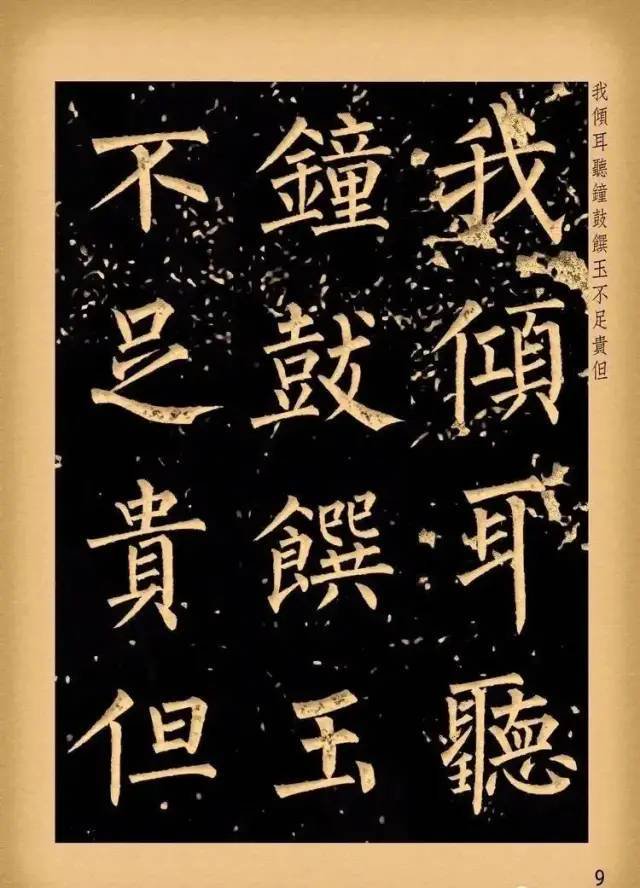 我傾耳聽
鐘鼓饌玉
不足貴但
我傾耳聽鐘鼓饌玉不足貴但
9